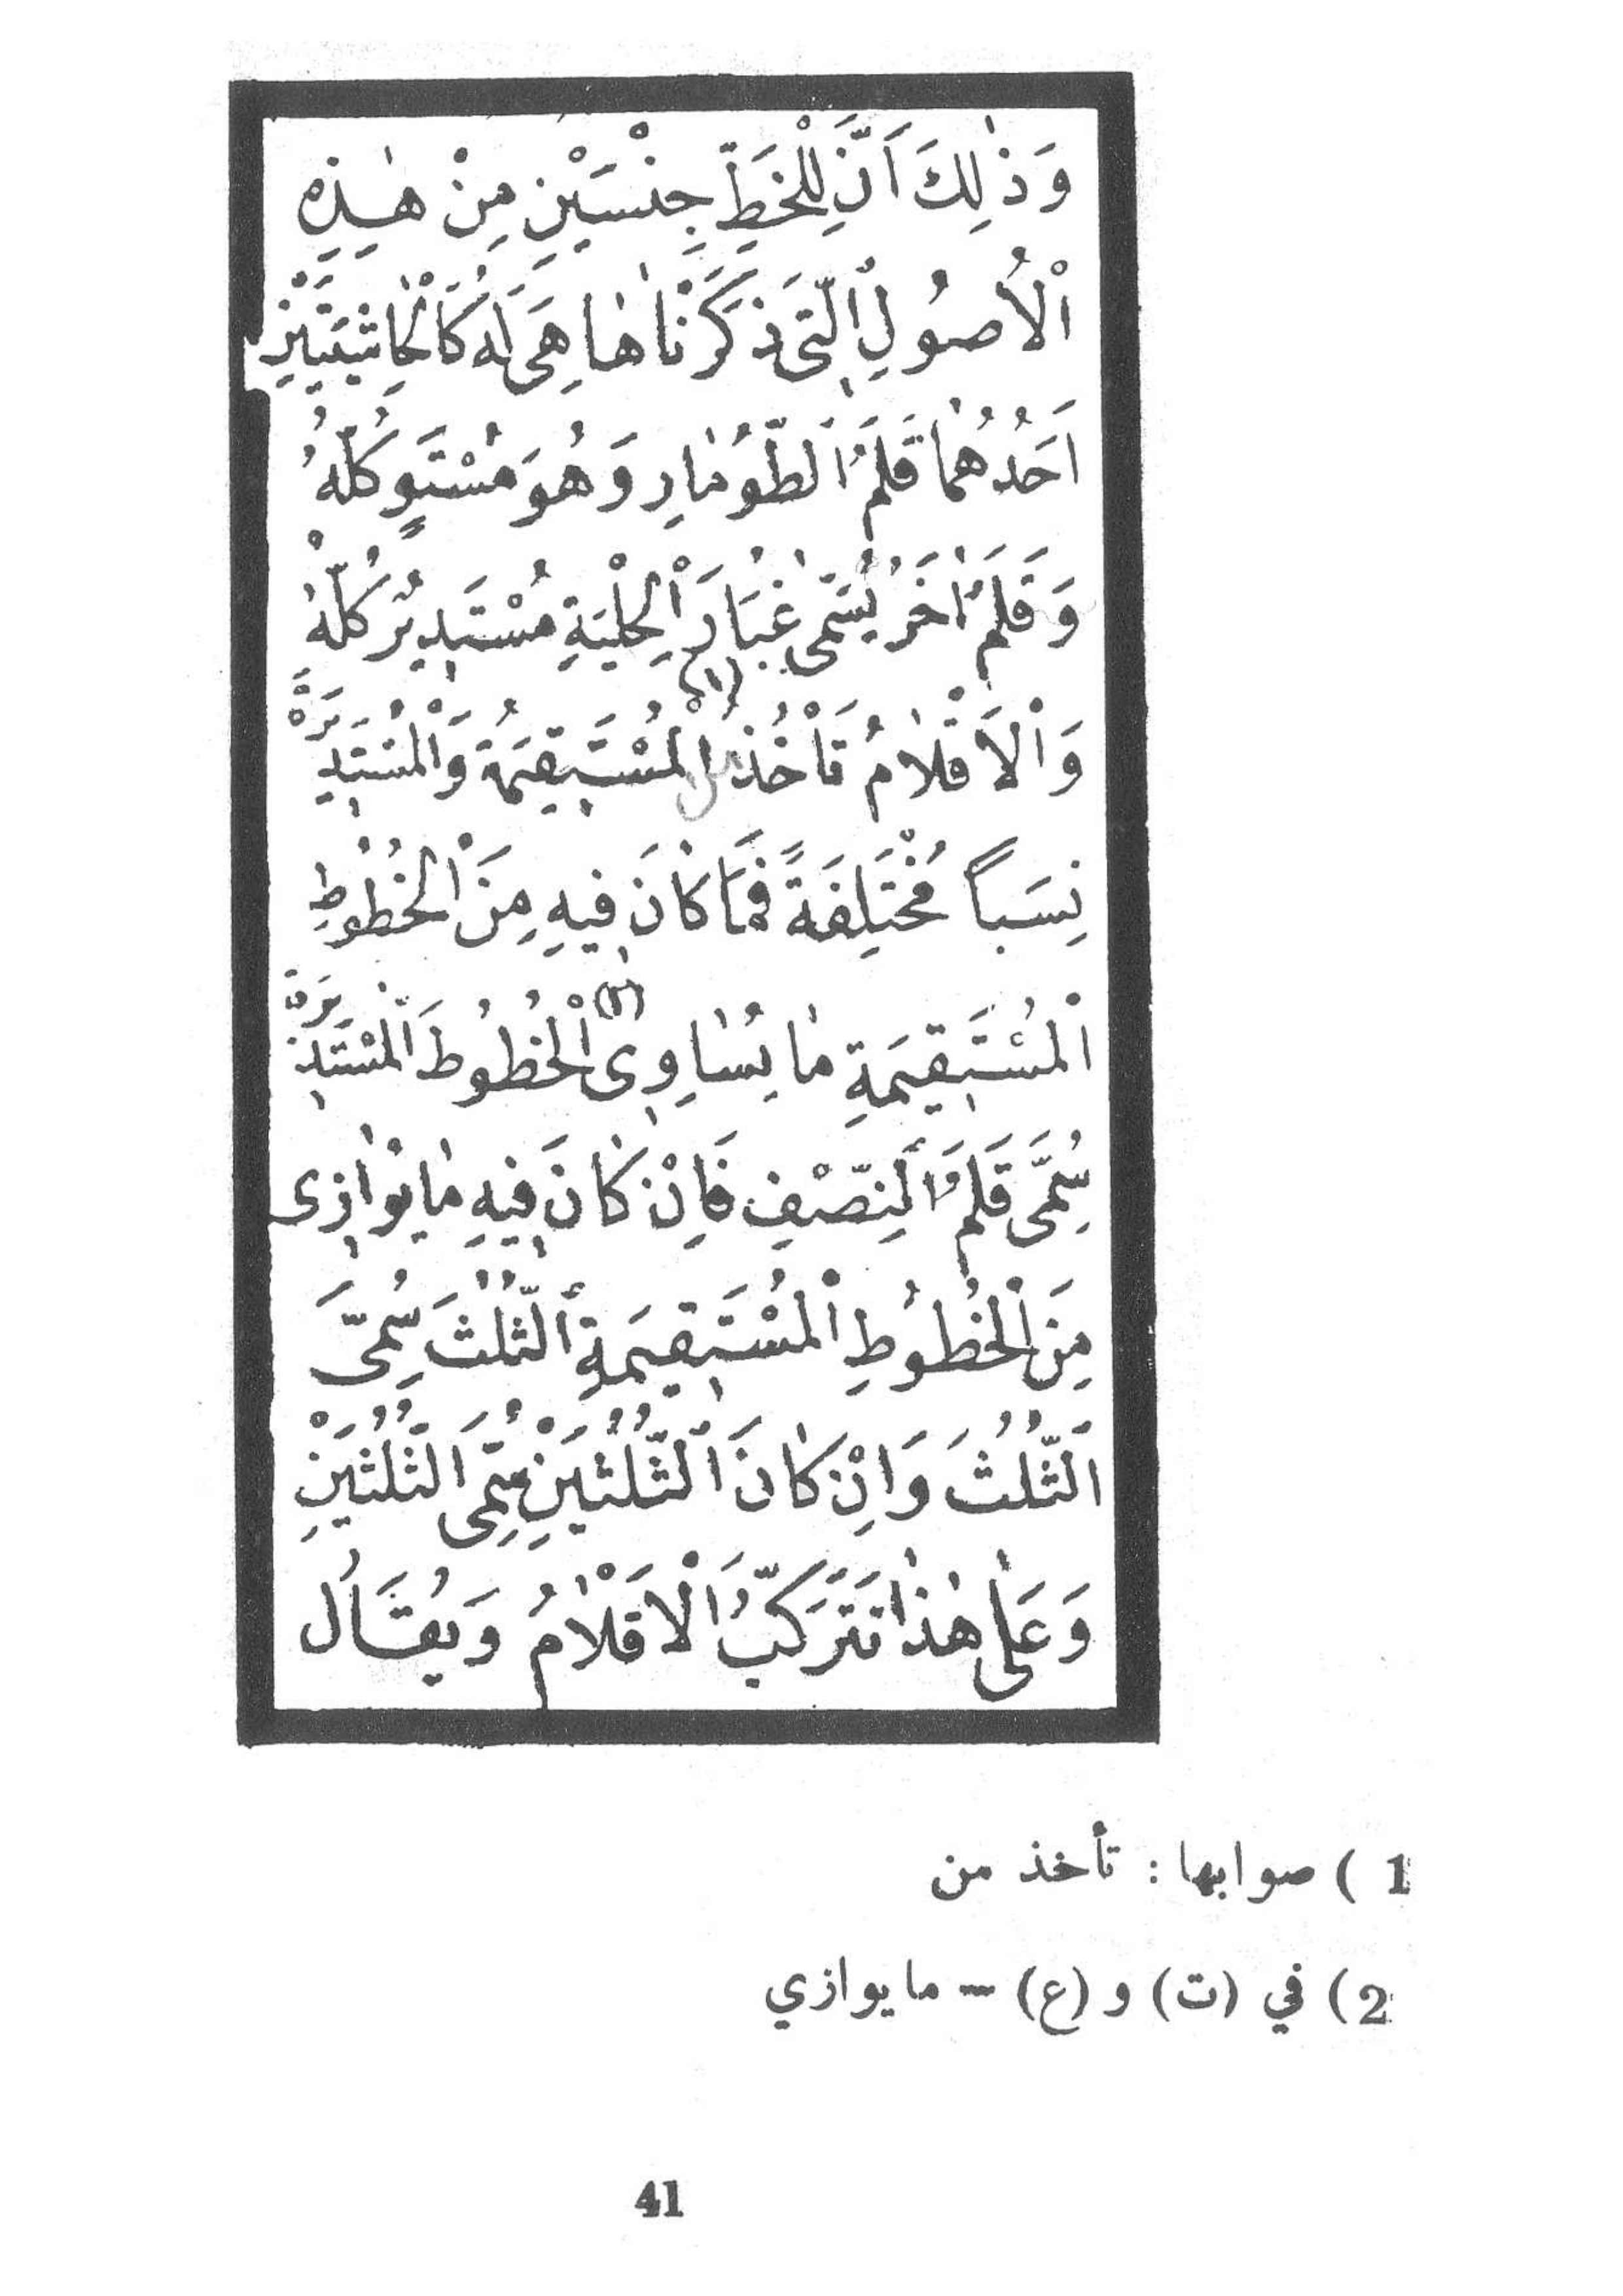 وَذٰلِكَ اَنَّ لِلْخَطِّ جِنْسَيْنِ مِنْ هٰذِهِ
اْلاُصُولِ الَّتِى ذَكَرْنَاهٰا هِىَ لَهُ كَالْحٰاشِيَتَيْنِ
اَحَدُهُمٰا قَلَمُ الطُّومٰارِ وَهُوَ مُسْتَوٍ كُلُّهُ
وَقَلَمٌ اٰخَرُ يُسَمّٰى غُبَارَ اْلحِلْيَةِ مُسْتَدِيرٌ كُلُّهُ
وَاْلاَقْلٰامُ تَاْخُذُ (١) اْلمُسْتَقِيمَةُ وَاْلمُسْتَدِيرَةُ
نِسَباً مُخْتَلِفَةً فَمَا كٰانَ فِيهِ مِنَ اْلخُطُوطِ
اْلمُسْتَقِيمَةِ مٰا يُسٰاوِى (٢) اْلخُطُوطَ اْلمُسْتَدِيرَةَ
سُمِّىَ قَلَمَ النِّصْفِ فَاِنْ كٰانَ فِيهِ مٰا يُوٰازِى
مِنَ اْلخُطُوطِ اْلمُسْتَقِيمَةِ الثُّلُثَ سُمِّىَ
الثُّلُثَ وَاِنْ كٰانَ الثُّلُثَيْنِ سُمِّىَ الثُّلُثَيْنِ
وَعَلٰى هٰذٰا تَتَرَكَّبُ اْلاَقْلٰامُ وَيُقَالُ
1 ) صوابها : تأخذ من
2) في (ت) و (ع) — ما يوازي
41